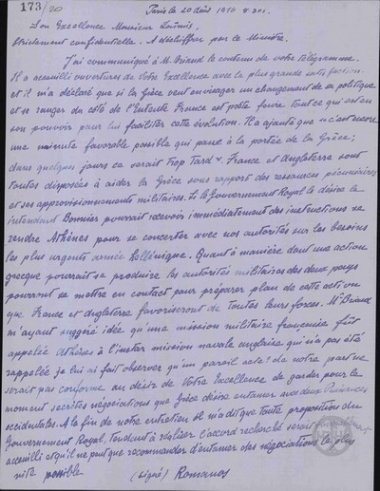 173/20
Paris le 20 Août 1916
Son Excellence Monsieur Zaïmis
Strictement confidentielle. A déchiffrer par le Ministre.
J'ai communiqué à M. Briand le contenu de votre télégramme.
Il a accueilli ouvertures de Votre Excellence avec la plus grande satisfaction
et il m'a déclaré que si la Grèce veut envisager un changement de sa politique
et se ranger du côté de l'Entente France est prête faire tout ce qui est en
son pouvoir pour lui faciliter cette évolution. Il a ajouté que c'est encore
une minute favorable possible qui passe à la portée de la Grèce;
dans quelques jours ce serait trop tard. France et Angleterre sont
toutes disposées à aider la Grèce sous rapport des ressources pécuniaires
et des approvisionnements militaires. Si le Gouvernement Royal le désire le
intendant Bonnier pourrait recevoir immédiatement des instructions se
rendre Athènes pour se concerter avec nos autorités sur les besoins
les plus urgents armée hellénique. Quant à manière dont une action
grecque pourrait se produire les autorités militaires des deux pays
pourront se mettre en contact pour préparer plan de cette action
que France et Angleterre favoriseront de toutes leurs forces. M. Briand
m'ayant suggéré idée qu'une mission militaire française fût
appelée Athènes à l'instar mission navale anglaise qui n'a pas été
rappelée je lui ai fait observer qu'un pareil acte de notre part ne
serait pas conforme au désir de Votre Excellence de garder pour le
moment secrètes négociations que Grèce désire entamer avec deux Puissances
occidentales. A la fin de notre entretien il m'a dit que toute proposition du
Gouvernement Royal, tendant à réaliser l'accord recherché serait
accueilli et qu'il ne peut que recommander d'entamer des négociations le plus
vite possible. (signé) Romanos